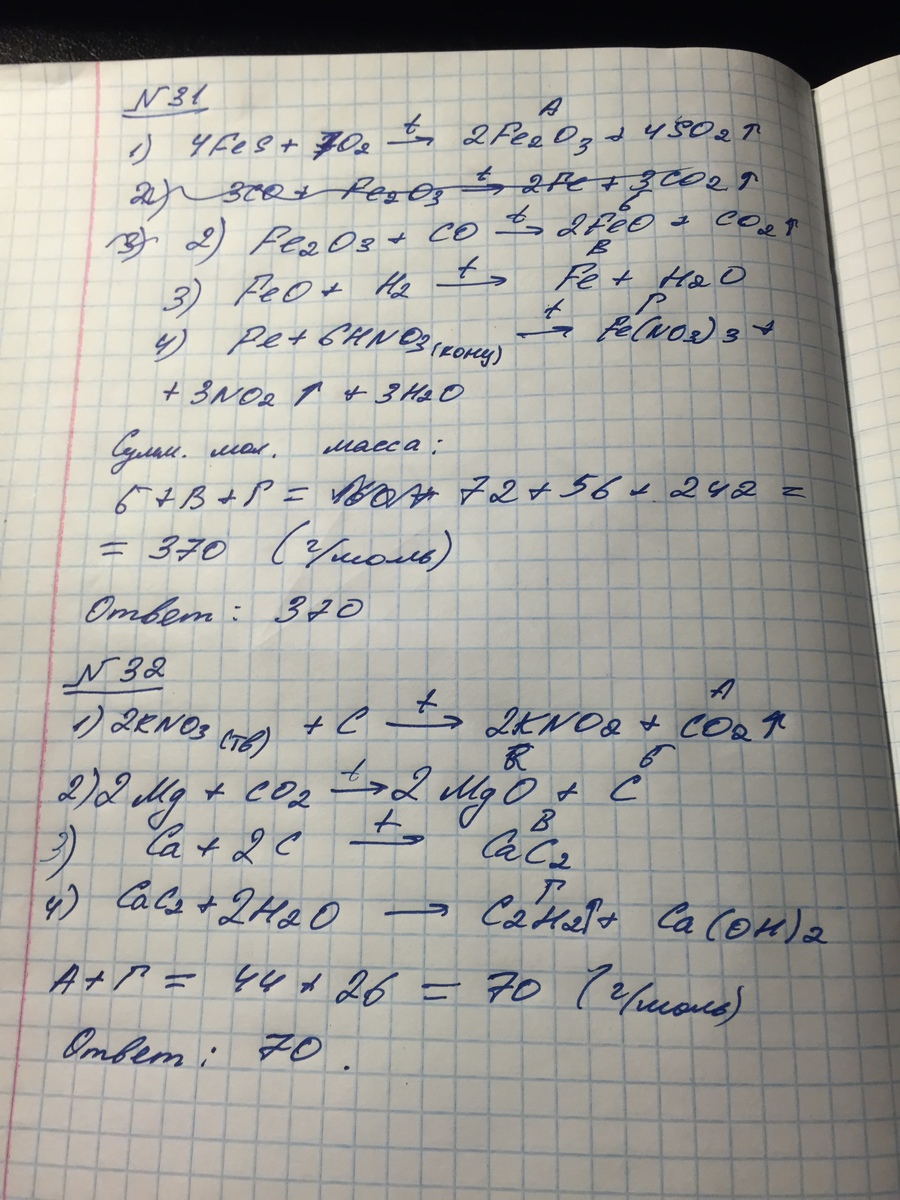 N31
1) 4FeS + 7O2 t→ 2Fe2O3 + 4SO2↑ А
2) 3CO + Fe2O3 t→ 2Fe + 3CO2↑
3) 2) Fe2O3 + CO t→ 2FeO + CO2↑ Б
3) FeO + H2 t→ Fe + H2O В
4) Fe + 6HNO3(конц) t→ Fe(NO3)3 + Г
+ 3NO2↑ + 3H2O
Сумм. мол. масса:
Б + В + Г = 72 + 56 + 242 =
= 370 (г/моль)
Ответ: 370
N32
1) 2KNO3(тв) + C t→ 2KNO2 + CO2↑ А
2) 2Mg + CO2 t→ 2MgO + C Б
3) Ca + 2C t→ CaC2 В
4) CaC2 + 2H2O → C2H2↑ + Ca(OH)2 Г
А + Г = 44 + 26 = 70 (г/моль)
Ответ: 70.